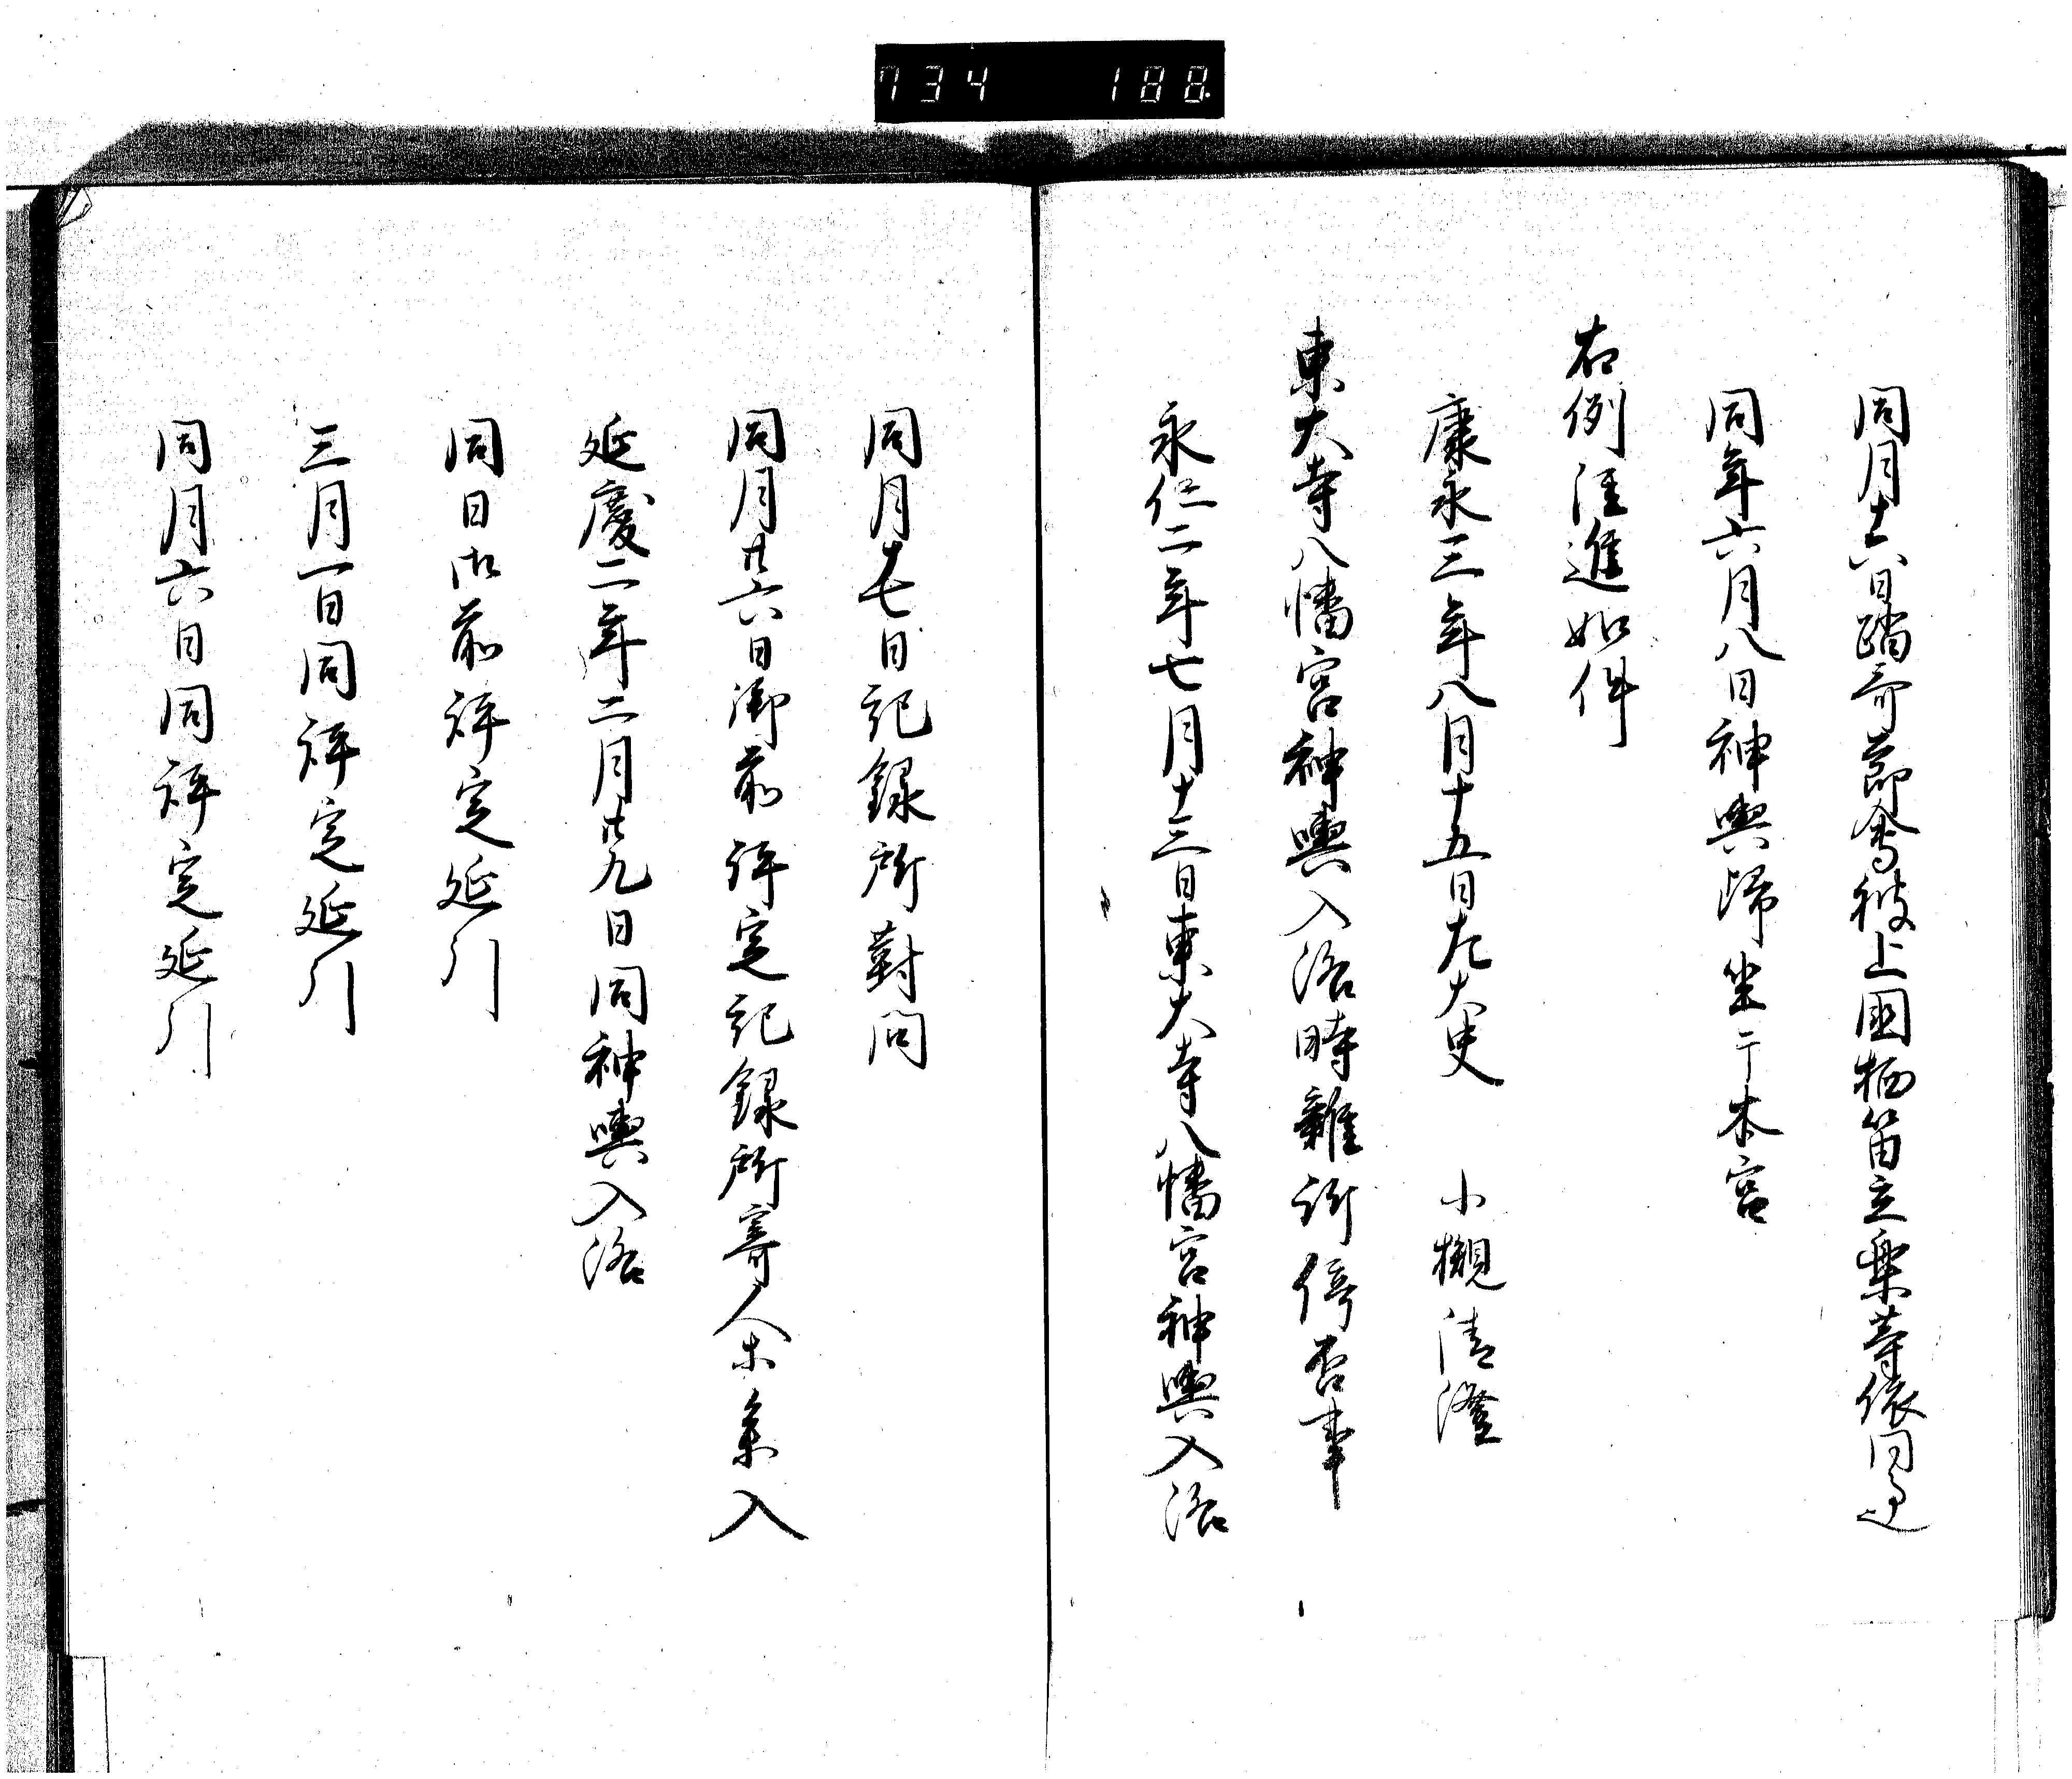 734 188
同月十六日踏哥節會被止国栖笛立樂等依同事也
同年六月八日神輿歸坐于本宮
右例注進如件
康永三年八月十五日左大史 小槻清澄
東大寺八幡宮神輿入洛時雜訴停否事
永仁二年七月十三日東大寺八幡宮神輿入洛
同月十七日記録所對問
同月廿六日御前評定記録所寄人等参入
延慶二年二月廿九日同神輿入洛
同日御前評定延引
三月一日同評定延引
同月六日同評定延引